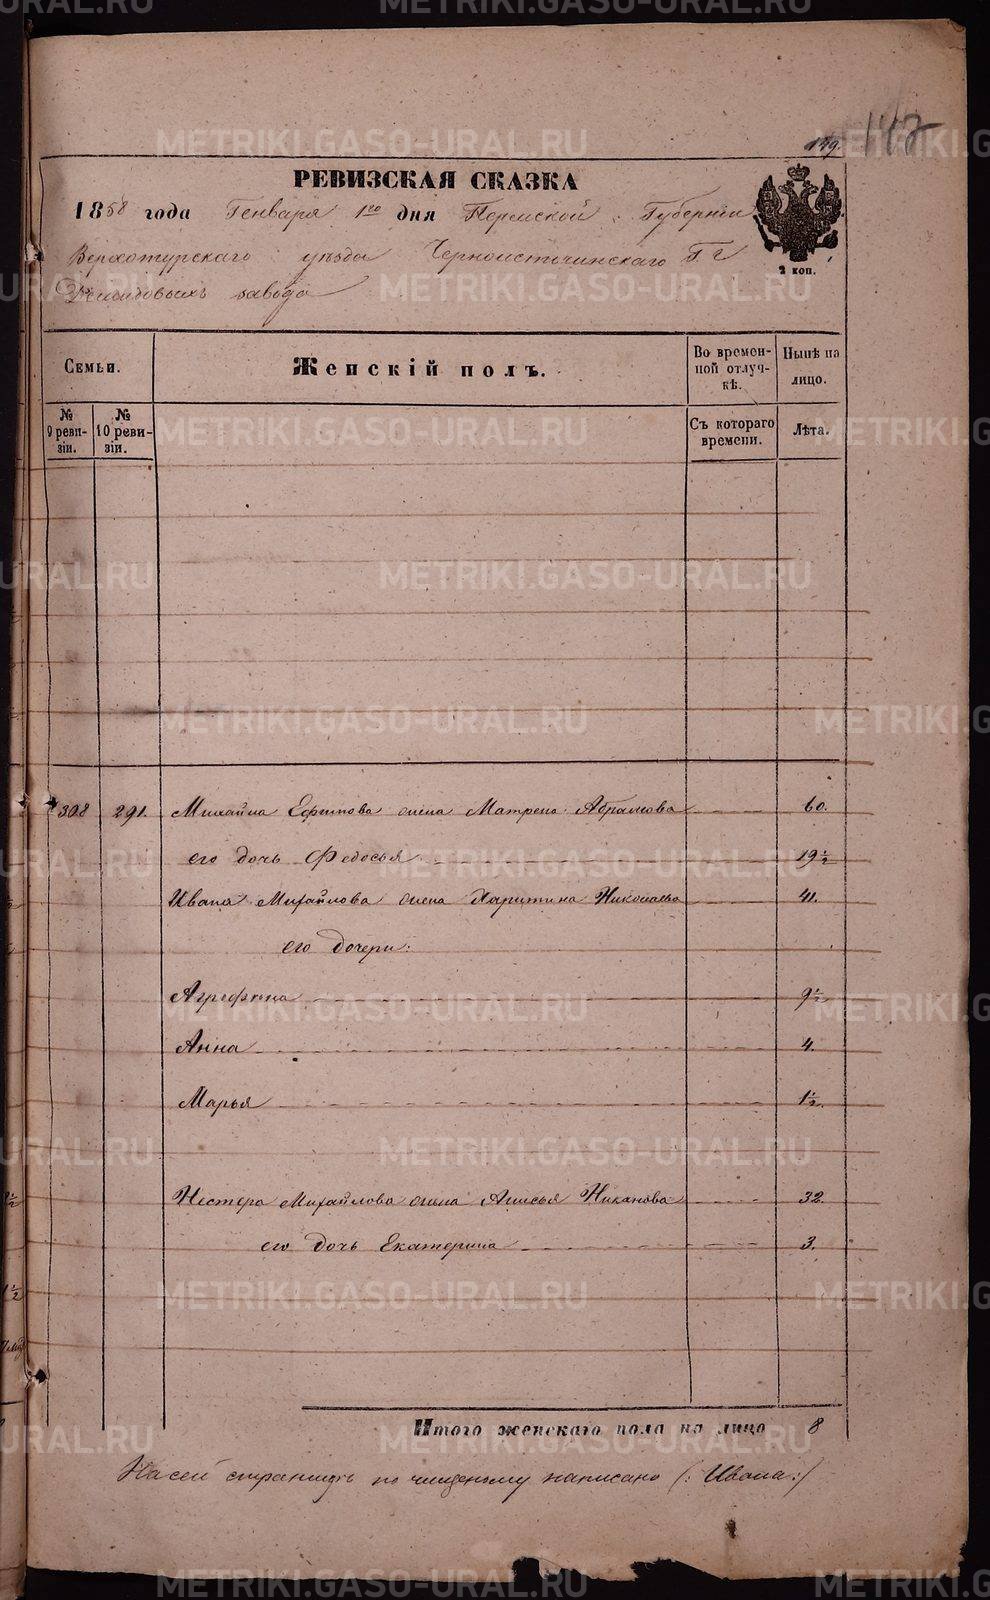 149.
РЕВИЗСКАЯ СКАЗКА
1858 года Генваря 1го дня Пермской Губернiи
Верхотурскаго уѣзда Черноисточинскаго Г.г.
Демидовыхъ завода
2 коп.
Семьи.
Женскiй полъ.
Во времен-
ной отлуч-
кѣ.
Нынѣ на
лицо.
№
9 реви-
зiи.
№
10 реви-
зiи.
Съ котораго
времени.
Лѣта.
308 291. Михайла Ефимова жена Матрена Абрамова 60.
его дочь Федосья 19 1/2
Ивана Михайлова жена Харитина Николаева 41.
его дочери:
Агрефена 9 1/2
Анна 4.
Марья 1 1/2.
Нестера Михайлова жена Анисья Никанова 32.
его дочь Екатерина 3.
Итого женскаго пола на лицо 8
На сей страницѣ по чищеному написано (: Ивана :)
METRIKI.GASO-URAL.RU